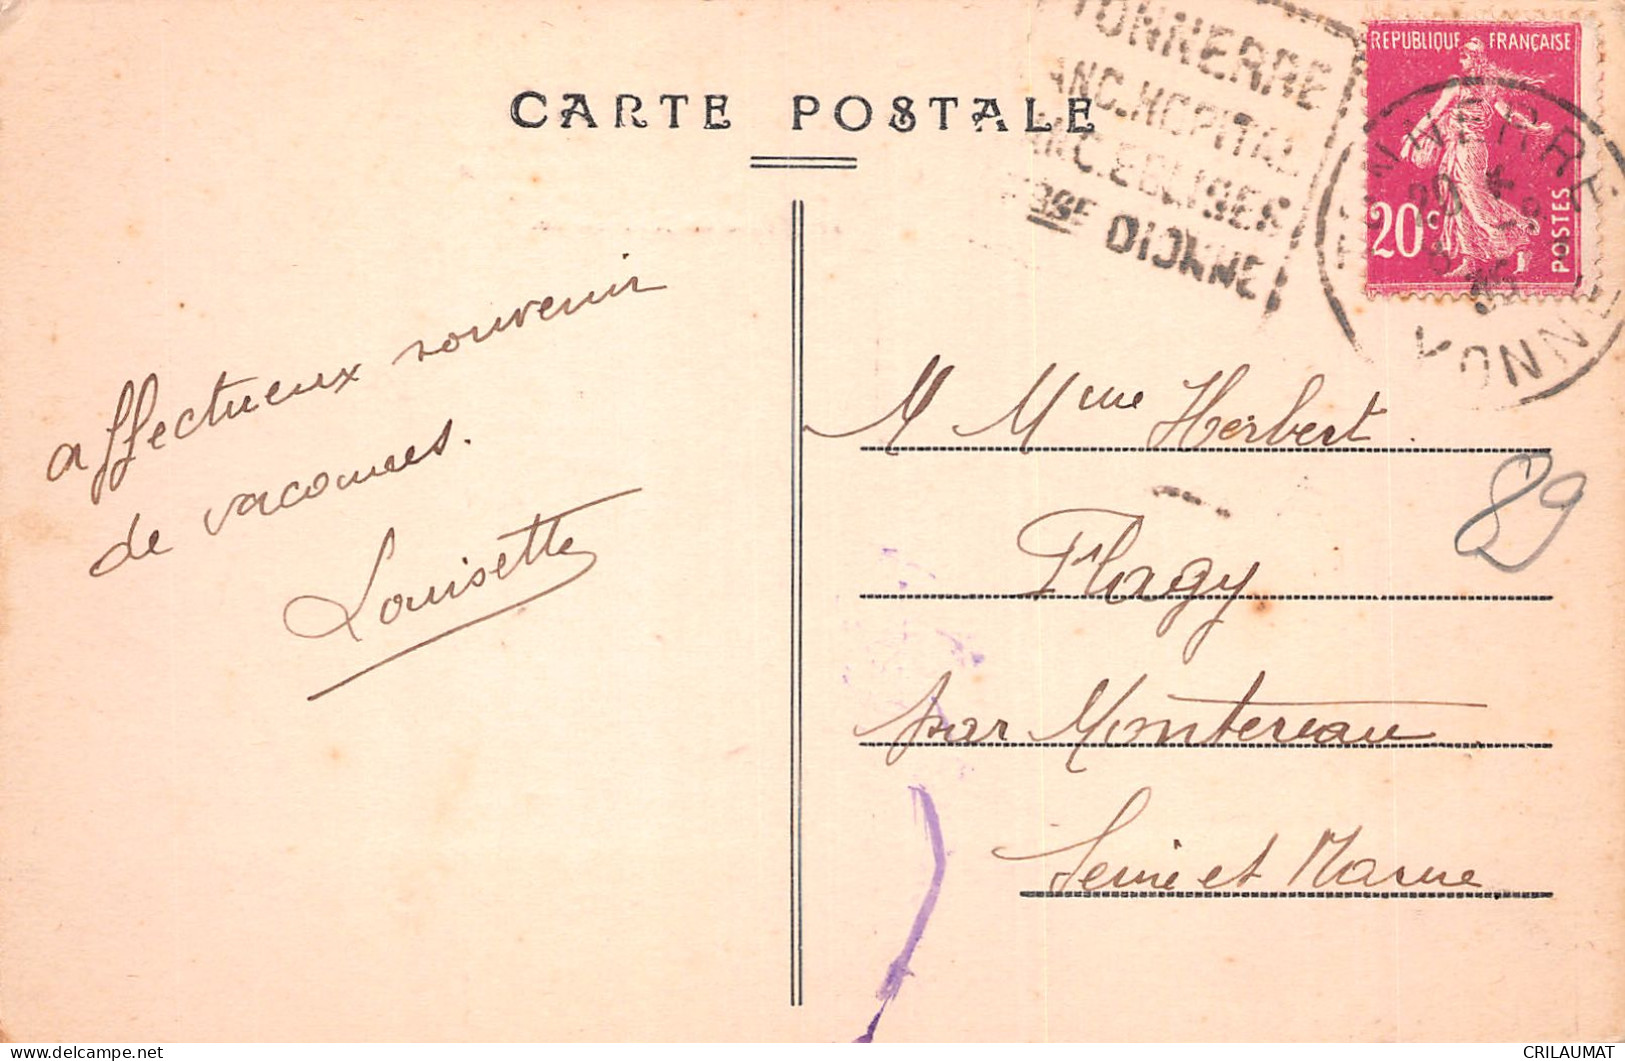 CARTE POSTALE
TONNERRE
ANC.HOPITAL
ANC.EGLISES
FOSSE DIONNE
REPUBLIQUE FRANÇAISE
20c
POSTES
TONNERRE
20 *
35
YONNE
affectueux souvenir
de vacances.
Louisette
M Mme Herbert.
Flagy
par Montereau
Seine et Marne
89
CRILAUMAT